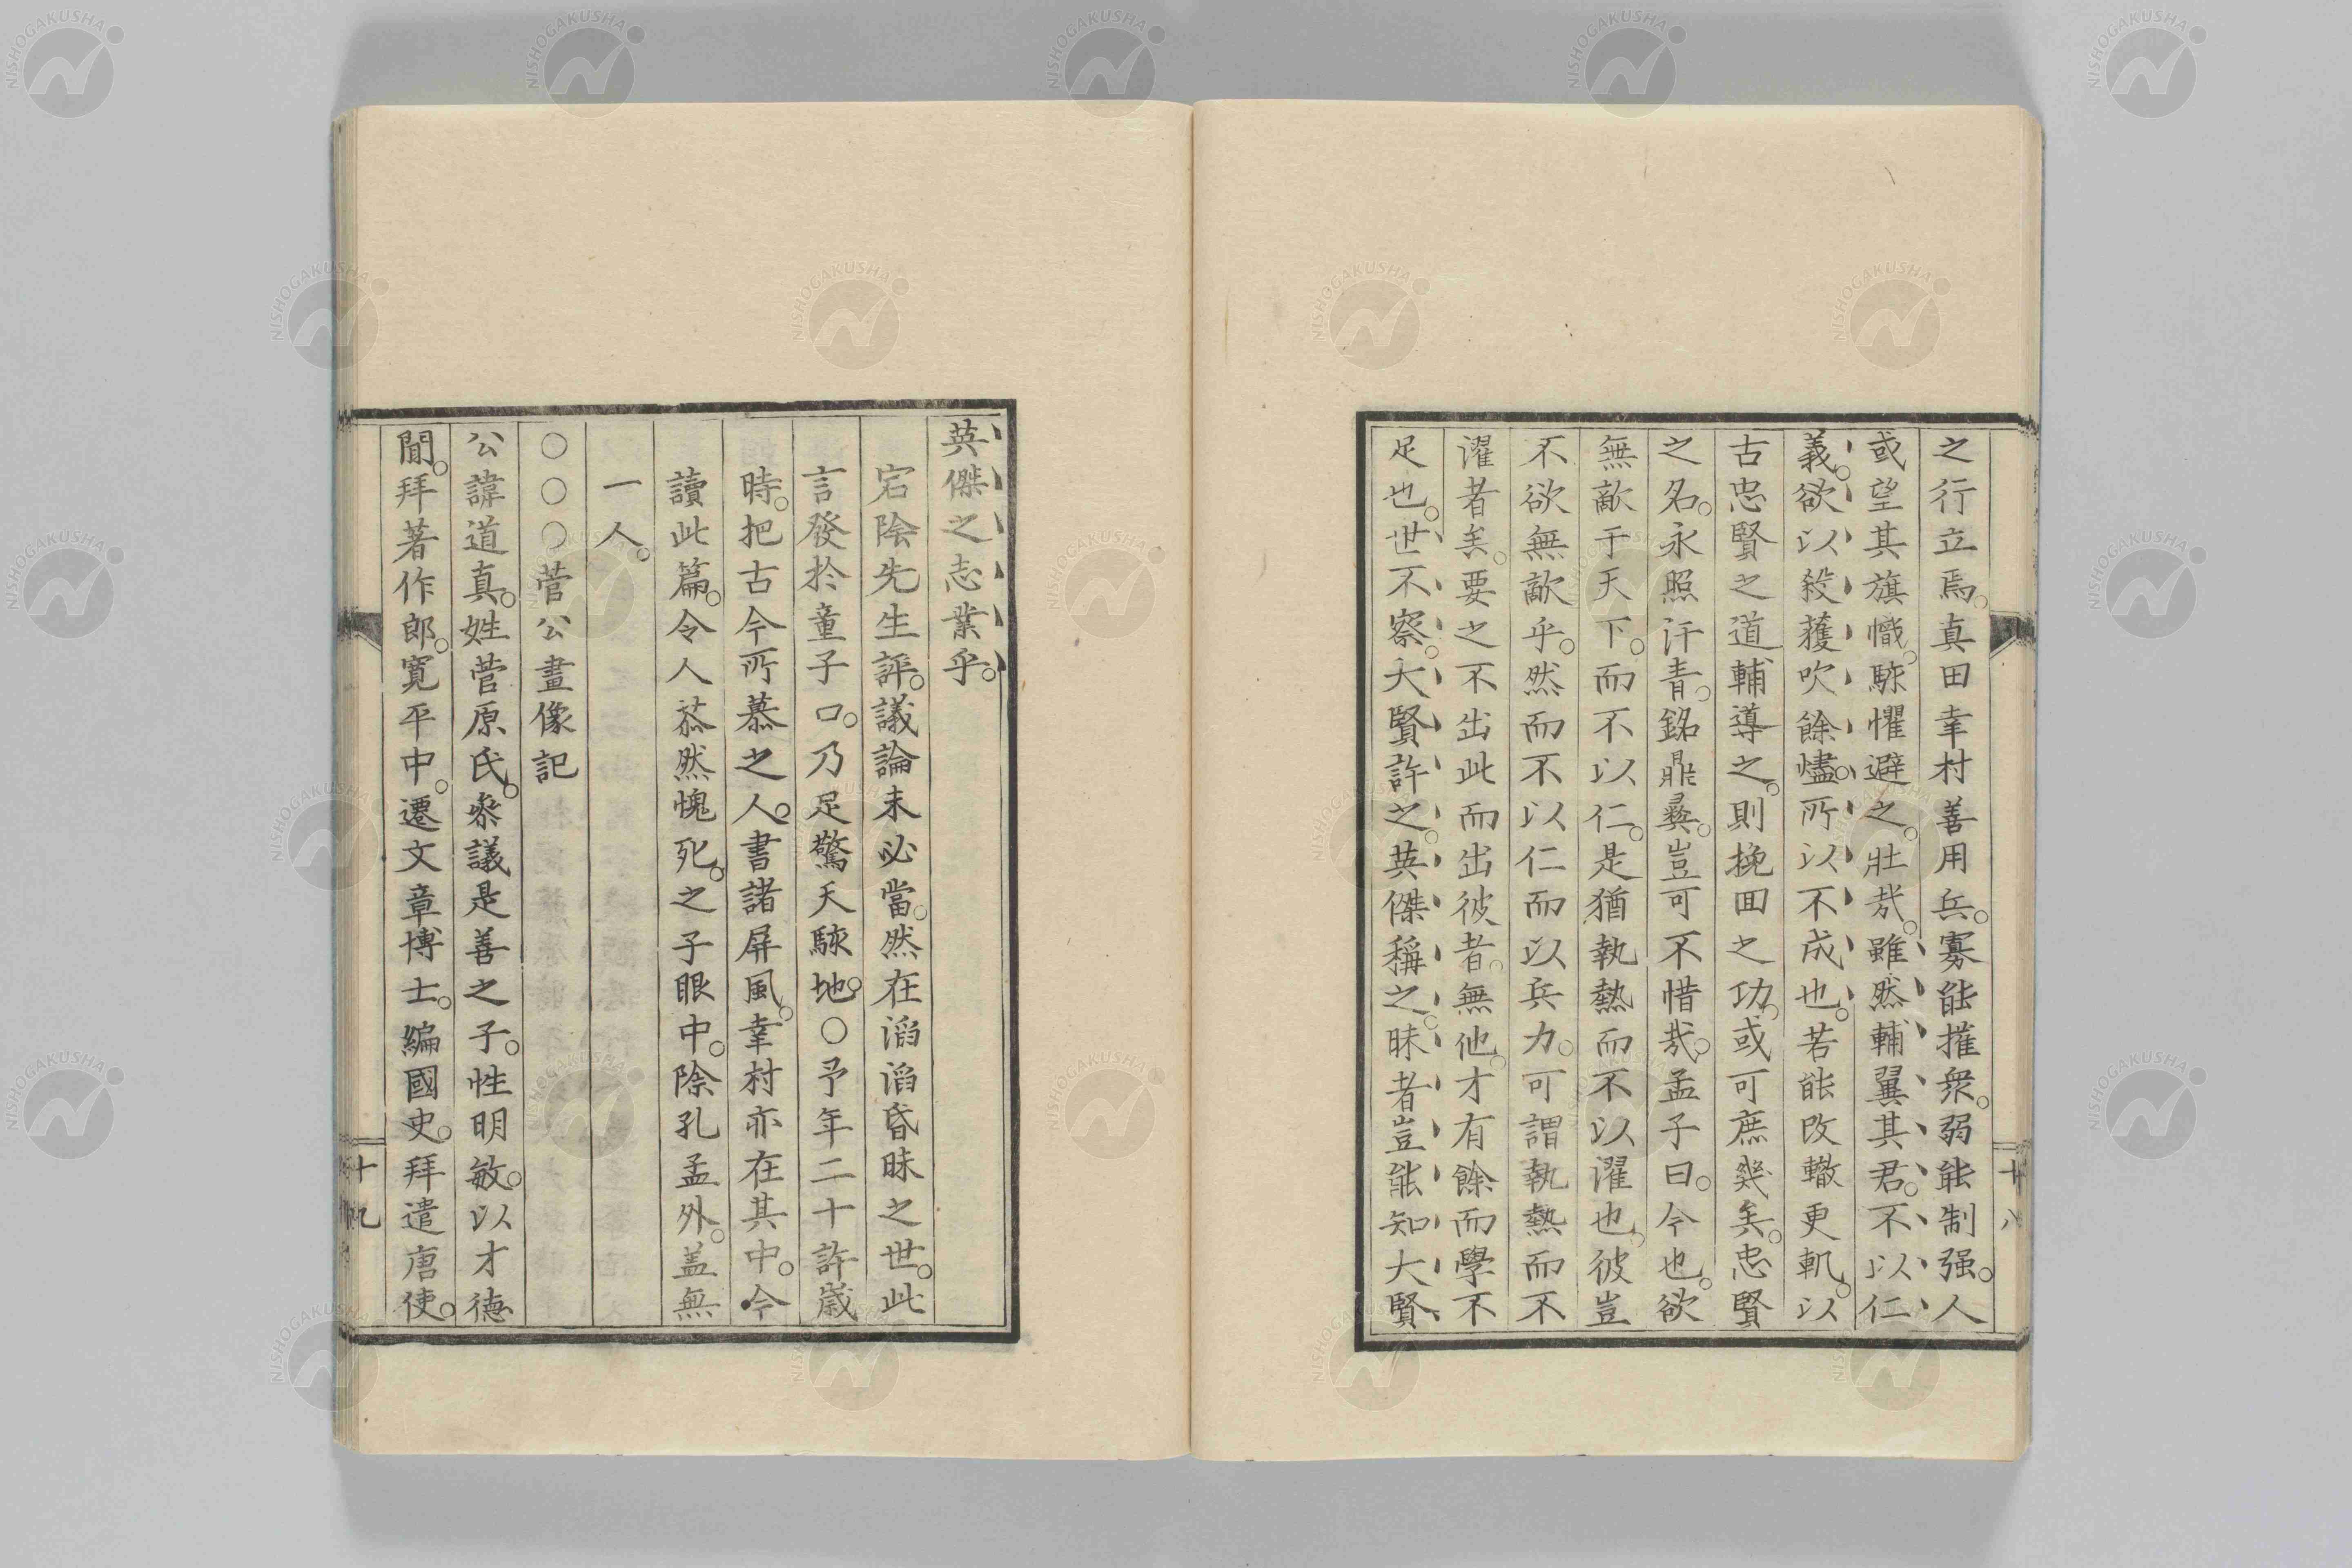 之行立焉。真田幸村善用兵。寡能摧衆。弱能制强。人
或望其旗幟。駭懼避之。壯哉。雖然輔翼其君。不以仁
義。欲以殺獲吹餘燼。所以不成也。若能改轍更軌。以
古忠賢之道輔導之。則挽回之功。或可庶幾矣。忠賢
之名。永照汗青。銘鼎彜。豈可不惜哉。孟子曰。今也。欲
無敵于天下。而不以仁。是猶執熱而不以濯也。彼豈
不欲無敵乎。然而不以仁而以兵力。可謂執熱而不
濯者矣。要之不出此而出彼者。無他。才有餘而學不
足也。世不察。大賢許之。英傑稱之。昧者豈能知大賢
十八
英傑之志業乎。
宕陰先生評。議論未必當。然在滔滔昏昧之世。此
言發於童子口。乃足驚天駭地。○予年二十許歲
時。把古今所慕之人。書諸屏風。幸村亦在其中。今
讀此篇。令人恭然愧死。之子眼中。除孔孟外。盖無
一人。
○○○菅公畫像記
公諱道真。姓菅原氏。叅議是善之子。性明敏。以才德
聞。拜著作郎。寛平中。遷文章博士。編國史。拜遣唐使。
十九
NISHOGAKUSHA